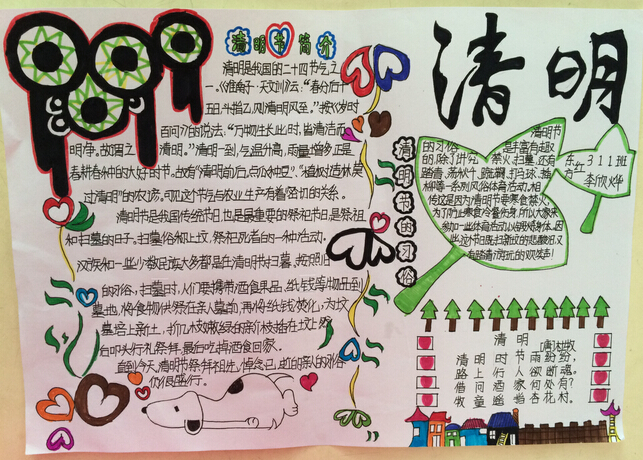 清明节简介
清明是我国的二十四节气之
一。《淮南子·天文训》云:"春分后十
五日,斗指乙,则清明风至。"按《岁时
百问》的说法:"万物生长此时,皆清洁而
明净。故谓之清明。"清明一到,气温升高,雨量增多,正是
春耕春种的大好时节。故有"清明前后,点瓜种豆"。"植树造林,莫
过清明"的农谚。可见这个节气与农业生产有着密切的关系。
清明节是我国传统节日,也是最重要的祭祀节日,是祭祖
和扫墓的日子。扫墓俗称上坟,祭祀死者的一种活动。
汉族和一些少数民族大多都是在清明节扫墓。按照旧
的习俗,扫墓时,人们要携带酒食果品,纸钱等物品到
墓地,将食物供祭在亲人墓前,再将纸钱焚化,为坟
墓培上新土,折几枝嫩绿的新枝插在坟上,然
后叩头行礼祭拜,最后吃掉酒食回家。
直到今天,清明节祭拜祖先,悼念已逝的亲人的习俗
仍很盛行。
清明
清明节的习俗
清明节
的习俗是丰富有趣
的,除了讲究禁火、扫墓,还有
踏青、荡秋千、蹴鞠、打马球、插
柳等一系列风俗体育活动。相
传这是因为清明节要寒食禁火,
为了防止寒食冷餐伤身,所以大家来
参加一些体育活动,以锻炼身体。因
此,这个节日既有扫新坟的悲酸泪,又
有踏青游玩的欢笑声!
东方红
311班
李欣烨
清明
唐 杜牧
清明时节雨纷纷,
路上行人欲断魂。
借问酒家何处有?
牧童遥指杏花村。